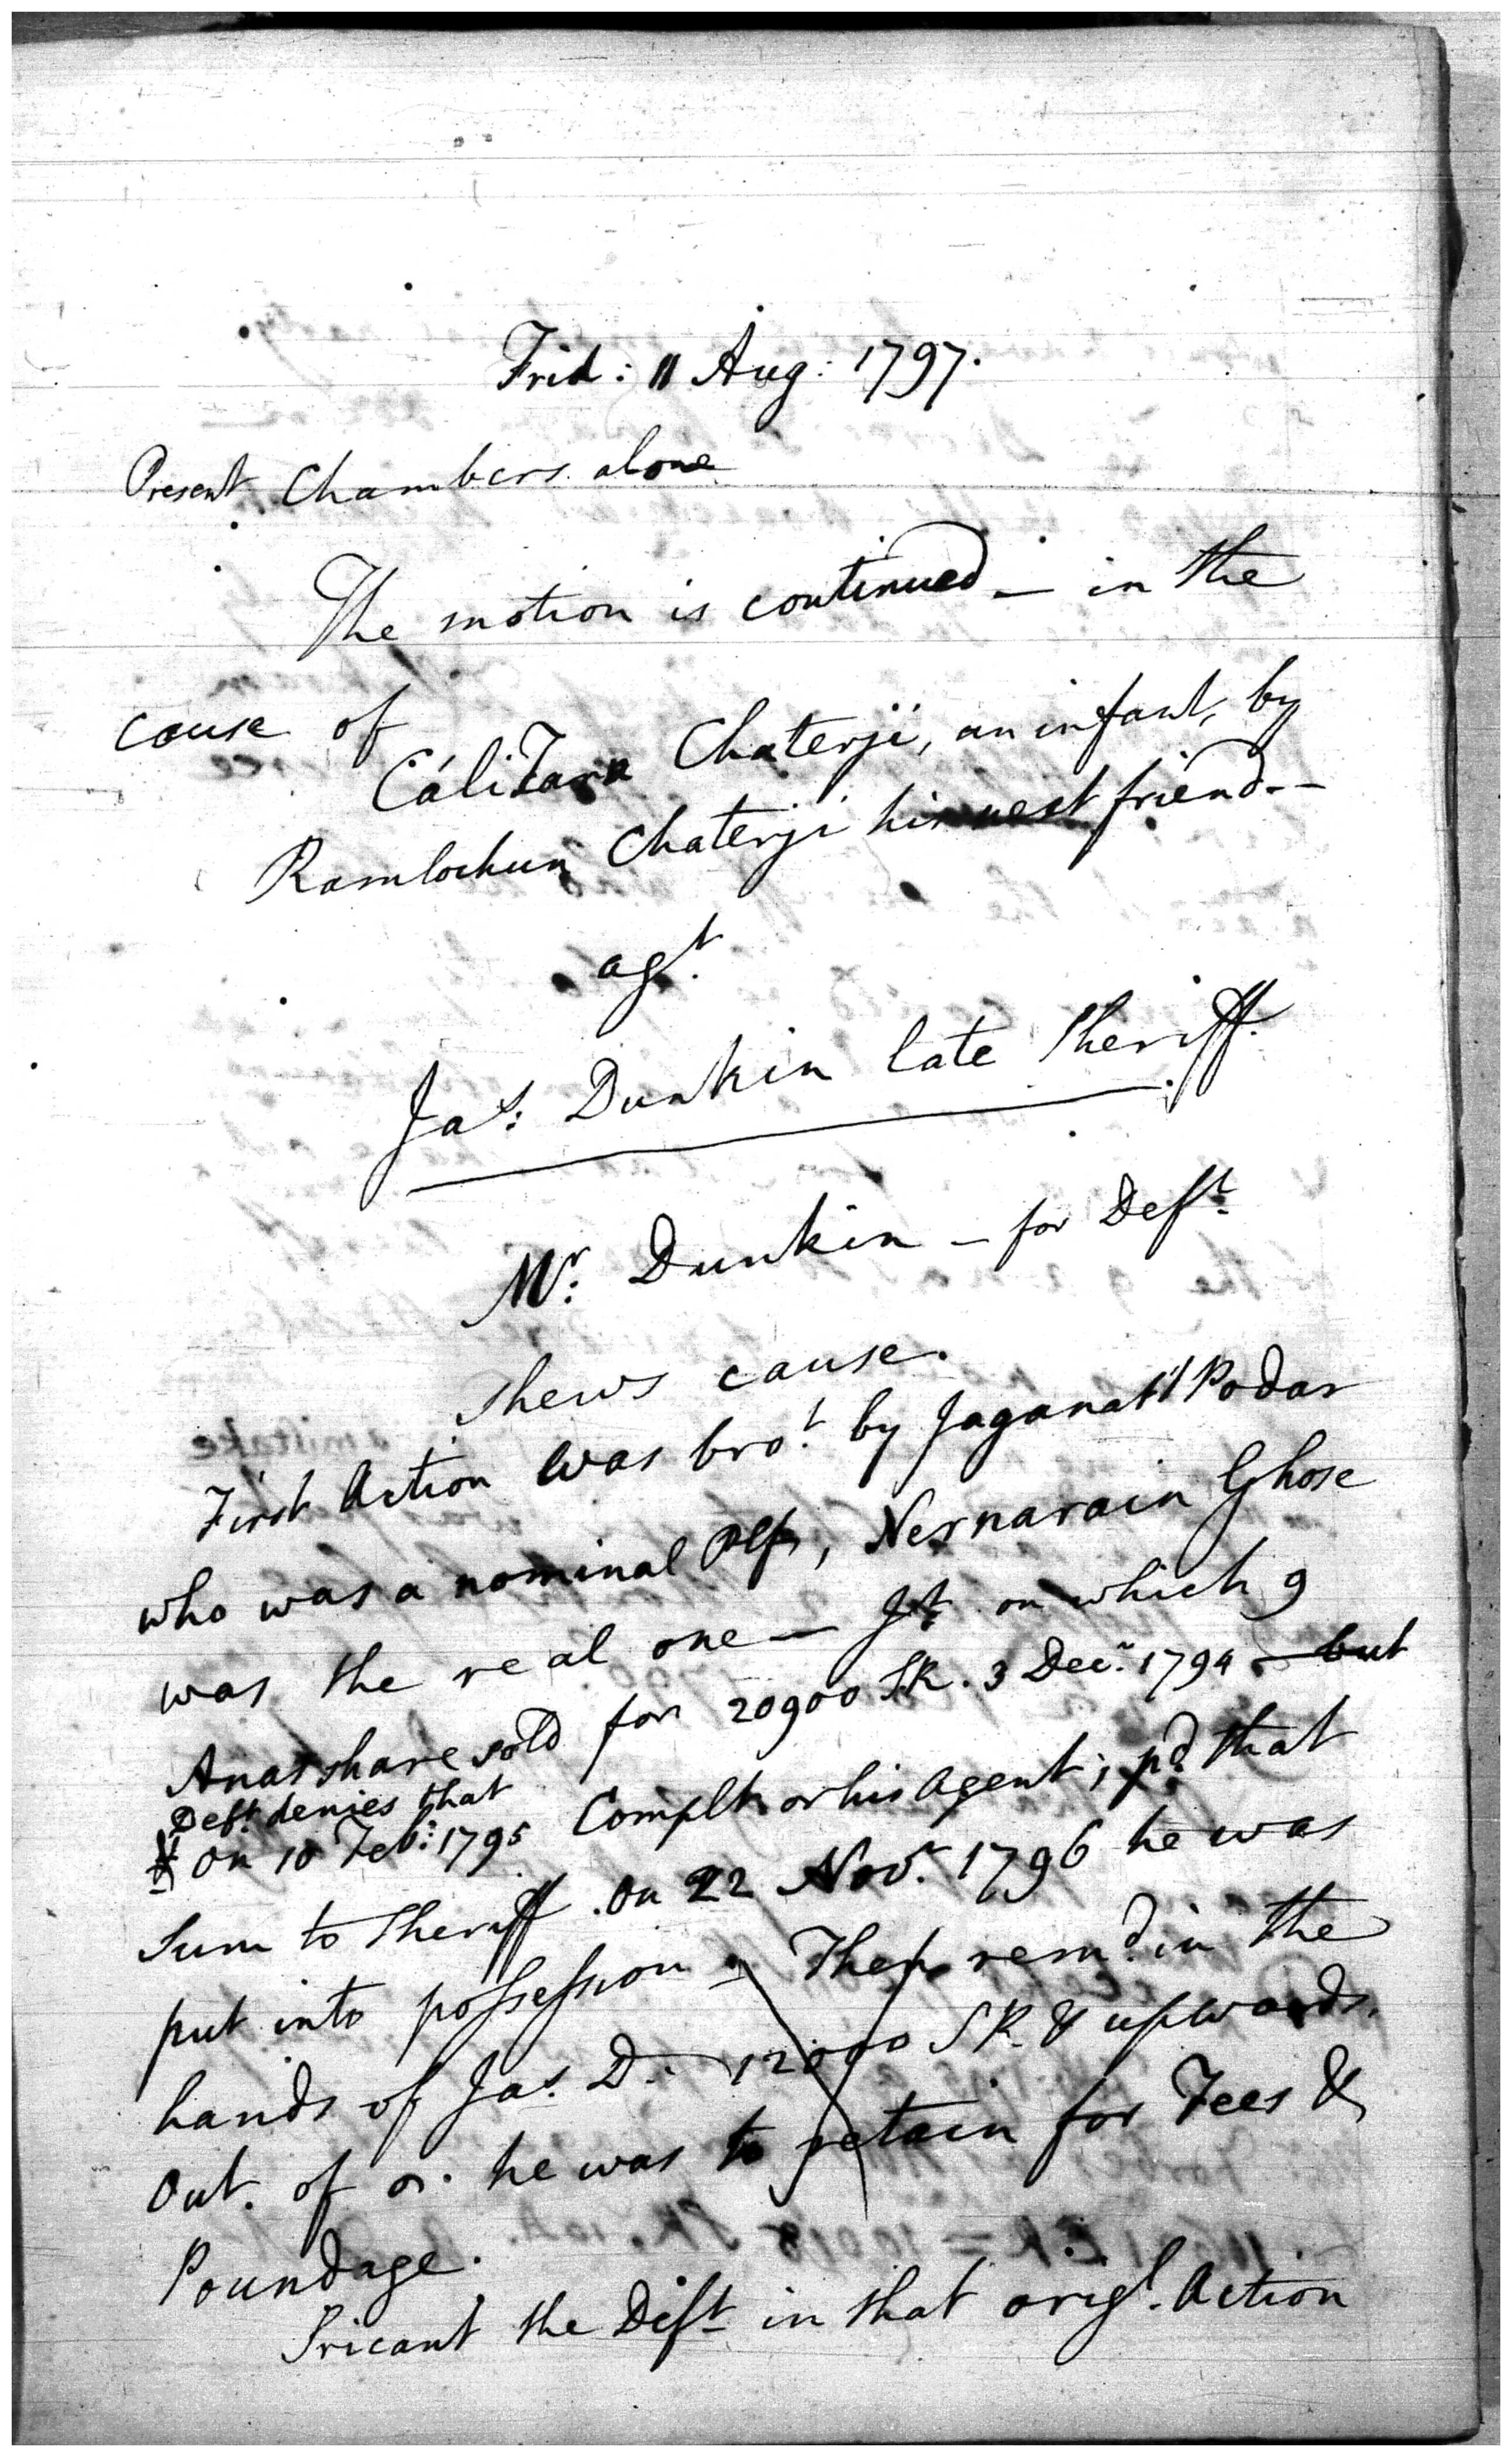 Frid: 11 Aug: 1797.
Present Chambers alone
The motion is continued — in the
cause of
CáliTara Chaterji, an infant, by
Ramlochun Chaterji his next friend--
agt.
Jas: Dunkin late Sheriff.
Mr. Dunkin – for Deft.
shews cause.
First Action was brot. by Jaganath Podar
who was a nominal Plf, Nernarain Ghose
was the real one — Jt. on which 9
Anas share sold for 20900 SR. 3 Decr. 1794 — but
Deft. denies that
on 10 Feb: 1795 Complt. or his Agent; pd. that
Sum to Sheriff. On 22 Novr. 1796 he was
put into possession – Then remd. in the
hands of Jas. D. 12000 SR. & upwards.
Out. of wh. he was to retain for Fees &
Poundage.
Sricant the Deft in that origl. Action